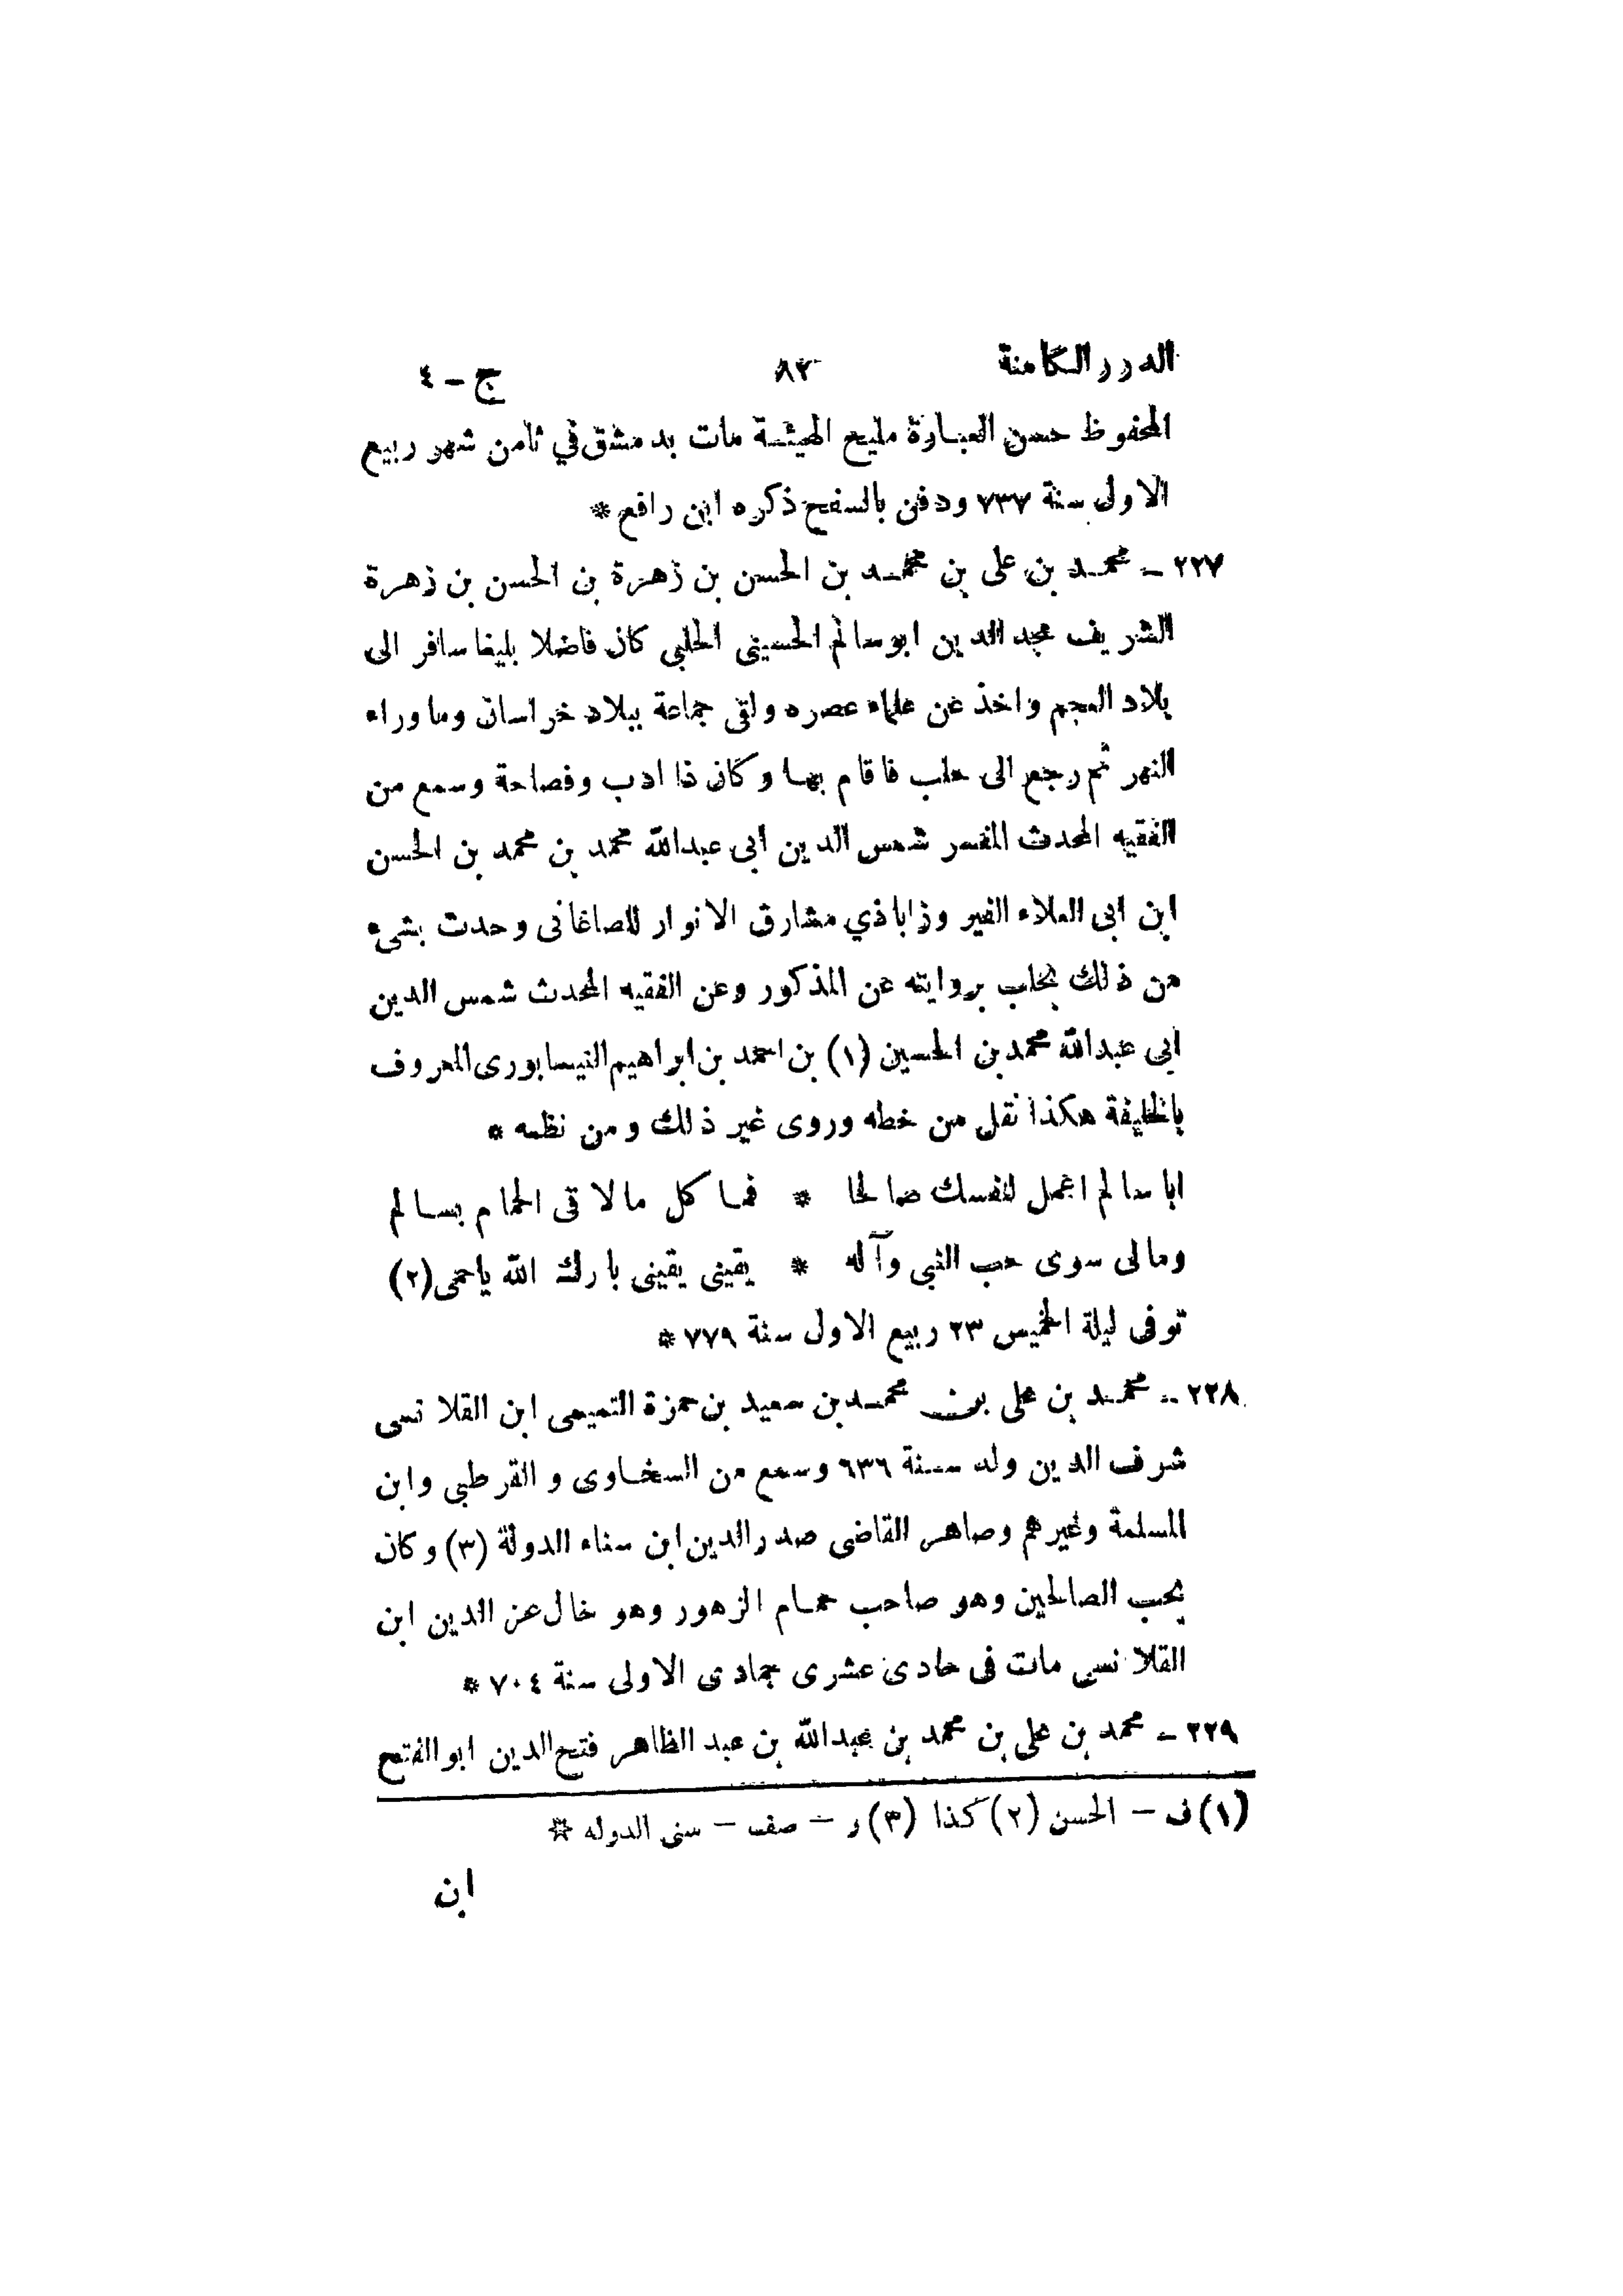 الدرر الكامنة ٨٢ ج - ٤
المحفوظ حسن العبارة مليح الهيئة مات بدمشق في ثامن شهر ربيع
الاول سنة ٧٣٧ ودفن بالسفح ذكره ابن رافع *
٢٢٧ - محمد بن على بن محمد بن الحسن بن زهرة بن الحسن بن زهرة
الشريف مجد الدين ابو سالم الحسينى الحلبي كان فاضلا بليغا سافر الى
بلاد العجم واخذ عن علماء عصره ولقى جماعة ببلاد خراسان وما وراء
النهر ثم رجع الى حلب فاقام بها وكان ذا ادب وفصاحة وسمع من
الفقيه المحدث المفسر شمس الدين ابى عبدالله محمد بن محمد بن الحسن
ابن ابى العلاء الفيروزاباذي مشارق الانوار للصاغانى وحدث بشىء
من ذلك بحلب بروايته عن المذكور وعن الفقيه المحدث شمس الدين
ابى عبدالله محمد بن الحسين (١) بن احمد بن ابراهيم النيسابورى المعروف
بالخليفة هكذا نقل من خطه وروى غير ذلك ومن نظمه *
ابا سالم اعمل لنفسك صالحا * فما كل ما لاقى الحمام بسالم
ومالى سوى حب النبي وآله * يقينى يقينى بارك الله ياحمى (٢)
توفى ليلة الخميس ٢٣ ربيع الاول سنة ٧٧٩ *
٢٢٨ - محمد بن على بن محمد بن سعيد بن حمزة التميمى ابن القلانسى
شرف الدين ولد سنة ٦٣٦ وسمع من السخاوى والقرطبى وابن
المسلمة وغيرهم وصاهر القاضى صدر الدين ابن سناء الدولة (٣) وكان
يحب الصالحين وهو صاحب حمام الزهور وهو خال عز الدين ابن
القلانسي مات فى حادى عشرى جمادى الاولى سنة ٧٠٤ *
٢٢٩ - محمد بن على بن محمد بن عبدالله بن عبد الظاهر فتح الدين ابو الفتح
(١) ف - الحسن (٢) كذا (٣) ر - صف - سنى الدوله *
ابن